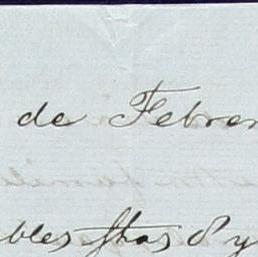 de Febrer
bles fhas 8 y